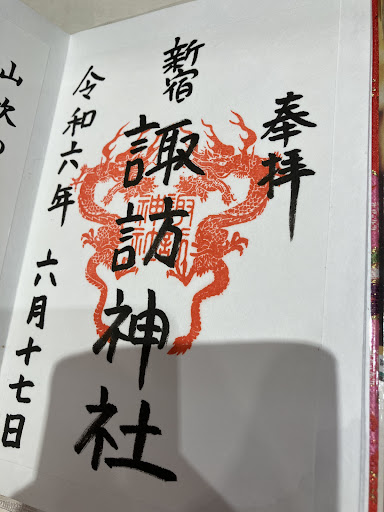 奉拝
新宿
諏訪神社
令和六年 六月十七日
山吹の